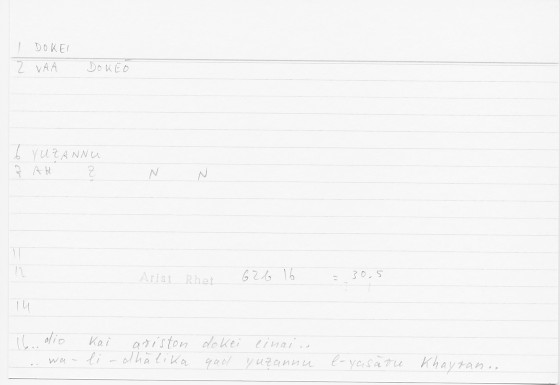 1 DOKEI
2 VAA DOKEŌ
6 YUẒANNU
7 AH Ẓ N N
11
12 Arist Rhet = 30.5
14
16 ..dio kai ariston dokei einai..
..wa-li-dhālika qad yuẓannu l-yasāru khayran..